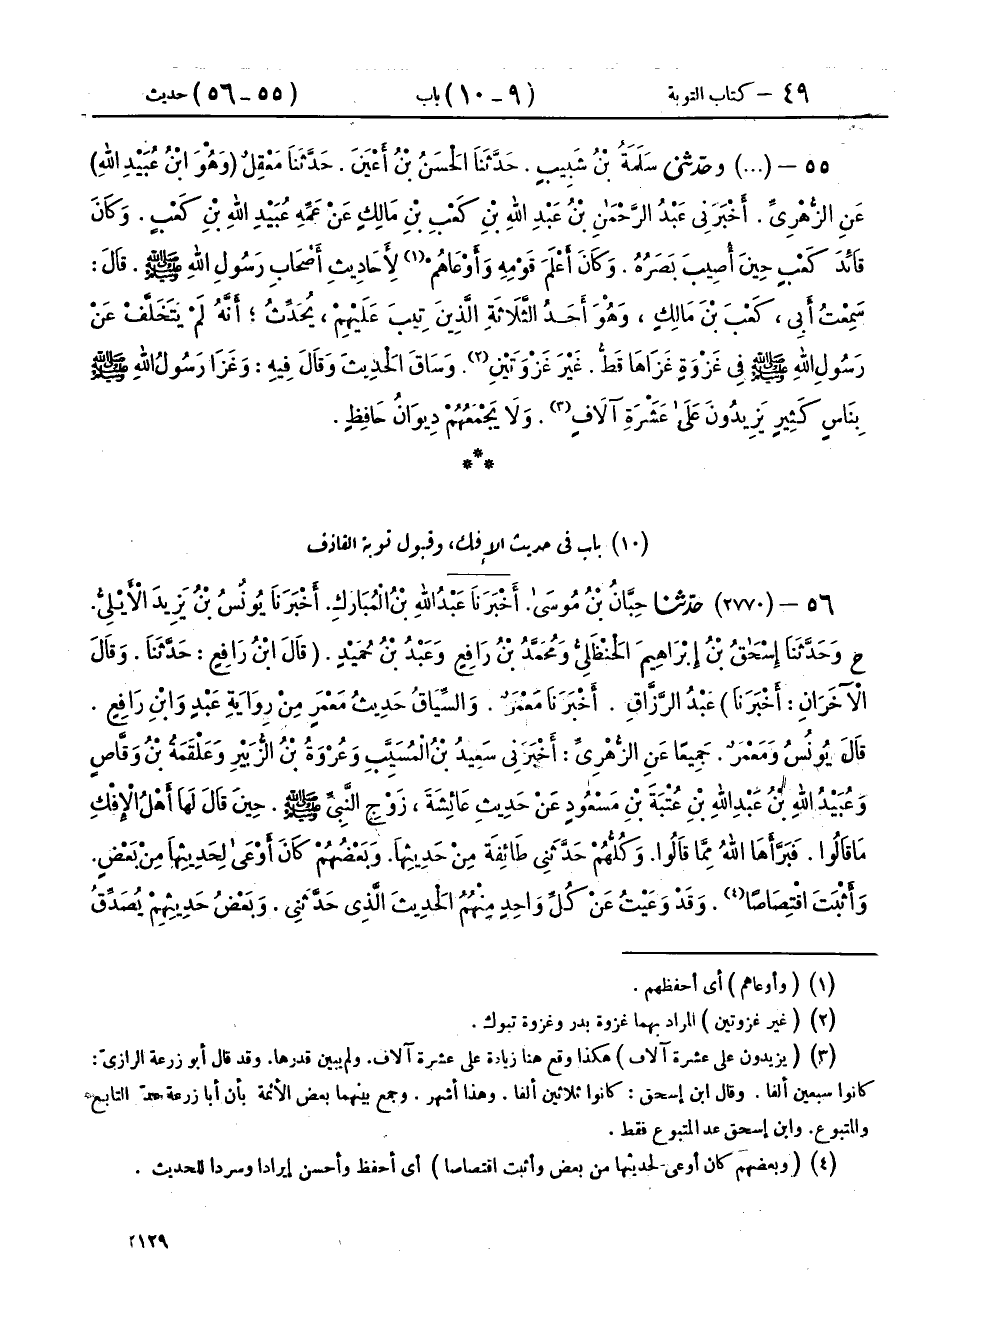 ٤٩ – كتاب التوبة (٩ – ١٠) باب (٥٥ – ٥٦) حديث
٥٥ – (...) وحَدَّثَنِي سَلَمَةُ بْنُ شَبِيبٍ. حَدَّثَنَا الْحَسَنُ بْنُ أَعْيَنَ. حَدَّثَنَا مَعْقِلٌ (وَهُوَ ابْنُ عُبَيْدِ اللهِ)
عَنِ الزُّهْرِيِّ. أَخْبَرَنِي عَبْدُ الرَّحْمَٰنِ بْنُ عَبْدِ اللهِ بْنِ كَعْبِ بْنِ مَالِكٍ عَنْ عَمِّهِ عُبَيْدِ اللهِ بْنِ كَعْبٍ. وَكَانَ
قَائِدَ كَعْبٍ حِينَ أُصِيبَ بَصَرُهُ. وَكَانَ أَعْلَمَ قَوْمِهِ وَأَوْعَاهُمْ(١) لِأَحَادِيثِ أَصْحَابِ رَسُولِ اللهِ ﷺ. قَالَ:
سَمِعْتُ أَبِي، كَعْبَ بْنَ مَالِكٍ، وَهُوَ أَحَدُ الثَّلَاثَةِ الَّذِينَ تِيبَ عَلَيْهِمْ، يُحَدِّثُ؛ أَنَّهُ لَمْ يَتَخَلَّفْ عَنْ
رَسُولِ اللهِ ﷺ فِي غَزْوَةٍ غَزَاهَا قَطُّ. غَيْرَ غَزْوَتَيْنِ(٢). وَسَاقَ الْحَدِيثَ وَقَالَ فِيهِ: وَغَزَا رَسُولُ اللهِ ﷺ
بِنَاسٍ كَثِيرٍ يَزِيدُونَ عَلَىٰ عَشَرَةِ آلَافٍ(٣). وَلَا يَجْمَعُهُمْ دِيوَانُ حَافِظٍ.
***
(١٠) باب في حديث الإفك، وقبول توبة القاذف
٥٦ – (٢٧٧٠) حَدَّثَنَا حِبَّانُ بْنُ مُوسَىٰ. أَخْبَرَنَا عَبْدُ اللهِ بْنُ الْمُبَارَكِ. أَخْبَرَنَا يُونُسُ بْنُ يَزِيدَ الْأَيْلِيُّ.
ح وَحَدَّثَنَا إِسْحَٰقُ بْنُ إِبْرَاهِيمَ الْحَنْظَلِيُّ وَمُحَمَّدُ بْنُ رَافِعٍ وَعَبْدُ بْنُ حُمَيْدٍ. (قَالَ ابْنُ رَافِعٍ: حَدَّثَنَا. وَقَالَ
الْآخَرَانِ: أَخْبَرَنَا) عَبْدُ الرَّزَّاقِ. أَخْبَرَنَا مَعْمَرٌ. وَالسِّيَاقُ حَدِيثُ مَعْمَرٍ مِنْ رِوَايَةِ عَبْدٍ وَابْنِ رَافِعٍ.
قَالَ يُونُسُ وَمَعْمَرٌ. جَمِيعًا عَنِ الزُّهْرِيِّ: أَخْبَرَنِي سَعِيدُ بْنُ الْمُسَيَّبِ وَعُرْوَةُ بْنُ الزُّبَيْرِ وَعَلْقَمَةُ بْنُ وَقَّاصٍ
وَعُبَيْدُ اللهِ بْنُ عَبْدِ اللهِ بْنِ عُتْبَةَ بْنِ مَسْعُودٍ عَنْ حَدِيثِ عَائِشَةَ، زَوْجِ النَّبِيِّ ﷺ. حِينَ قَالَ لَهَا أَهْلُ الْإِفْكِ
مَا قَالُوا. فَبَرَّأَهَا اللهُ مِمَّا قَالُوا. وَكُلُّهُمْ حَدَّثَنِي طَائِفَةً مِنْ حَدِيثِهَا. وَبَعْضُهُمْ كَانَ أَوْعَىٰ لِحَدِيثِهَا مِنْ بَعْضٍ.
وَأَثْبَتَ اقْتِصَاصًا(٤). وَقَدْ وَعَيْتُ عَنْ كُلِّ وَاحِدٍ مِنْهُمُ الْحَدِيثَ الَّذِي حَدَّثَنِي. وَبَعْضُ حَدِيثِهِمْ يُصَدِّقُ
(١) (وأوعاهم) أي أحفظهم.
(٢) (غير غزوتين) المراد بهما غزوة بدر وغزوة تبوك.
(٣) (يزيدون على عشرة آلاف) هكذا وقع هنا زيادة على عشرة آلاف. ولم يبين قدرها. وقد قال أبو زرعة الرازيّ:
كانوا سبعين ألفا. وقال ابن إسحق: كانوا ثلاثين ألفا. وهذا أشهر. وجمع بينهما بعض الأئمة بأن أبا زرعة عدّ التابع
والمتبوع. وابن إسحق عد المتبوع فقط.
(٤) (وبعضهم كان أوعى لحديثها من بعض وأثبت اقتصاصا) أي أحفظ وأحسن إيرادا وسردا للحديث.
٢١٢٩